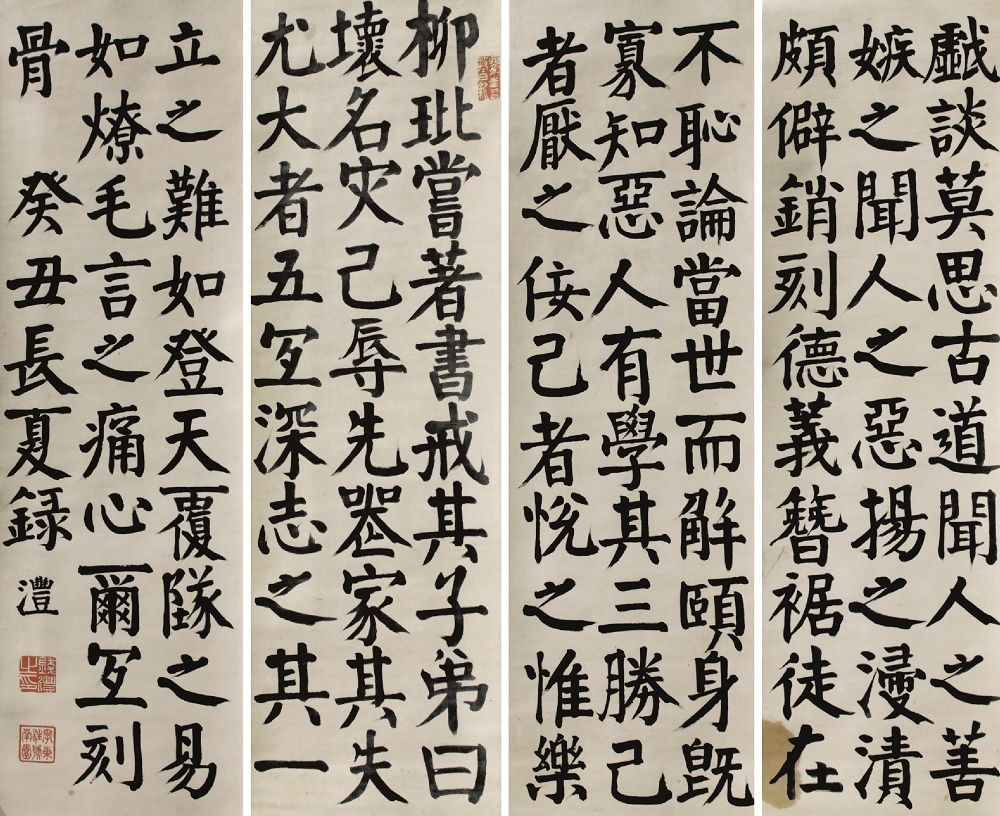 戲談莫思古道聞人之善
嫉之聞人之惡揚之浸漬
頗僻銷刻德義簪裾徒在
不恥論當世而解頤身既
寡知惡人有學其三勝己
者厭之佞己者悅之惟樂
柳玭嘗著書戒其子弟曰
壞名灾己辱先喪家其失
尤大者五宜深志之其一
立之難如登天覆隊之易
如燎毛言之痛心爾宜刻
骨 癸丑長夏録 灃
錢灃之印